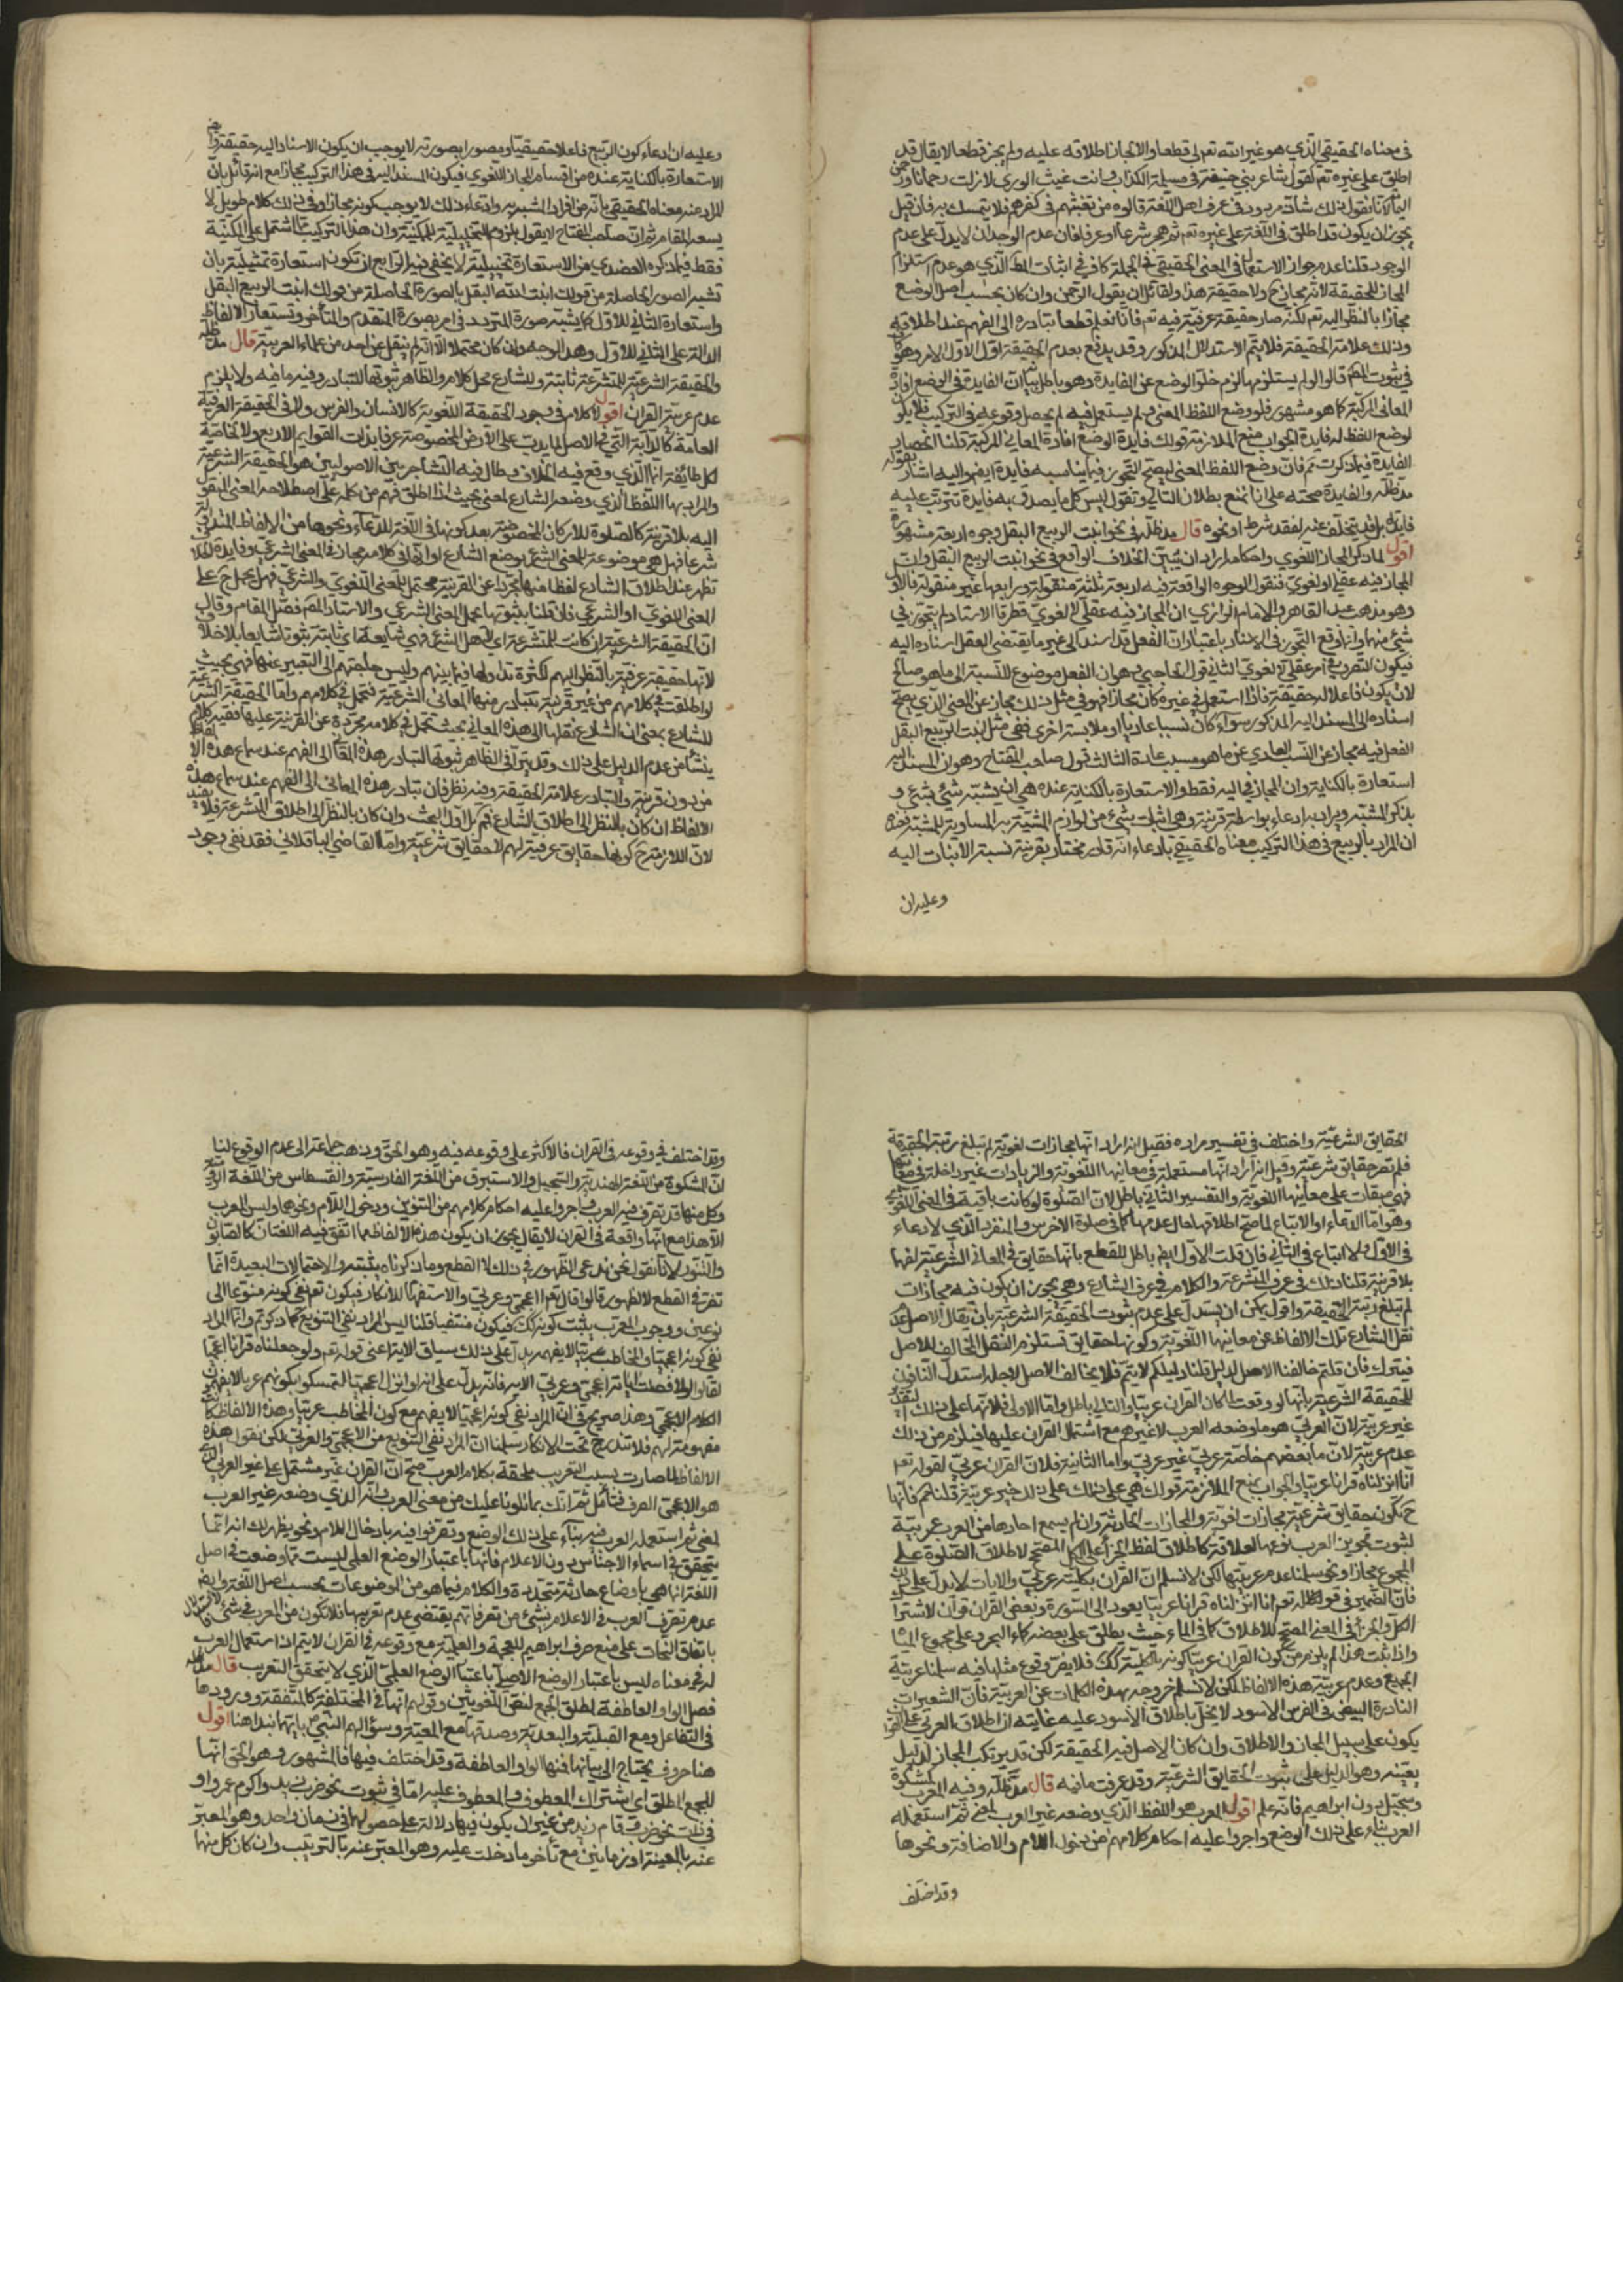 في معناه الحقيقي الذي هو غير الله تعم لى قطعا والا لجاز اطلاقه عليه ولم يجز قطعا لا يقال قد
اطلق على غيره تعم كقول شاعر بني حنيفة في مسيلمة الكذاب وانت غيث الورى لازلت رحمانا ورحمن
اليمامة لانا نقول ذلك شاذ مردود في عرف اهل اللغة قالوه من تعنتهم في كفرهم فلا يتمسك به فان قيل
يجوز ان يكون قد اطلق في اللغة على غيره تعم ثم هجر شرعا او عرفا فان عدم الوجدان لا يدل على عدم
الوجود قلنا عدم جواز الاستعمال في المعنى الحقيقي في الجملة كاف في اثبات المط الذي هو عدم استلزام
المجاز للحقيقة لانه مجاز ح ولا حقيقة هذا ولقائل ان يقول الرحمن وان كان بحسب اصل الوضع
مجازا بالنظر اليه تعم لكنه صار حقيقة عرفية فيه تعم فانا نعلم قطعا تبادره الى الفهم عند اطلاقه
وذلك علامة الحقيقة فلا يتم الاستدلال المذكور وقد يدفع بعدم الحقيقة اول الامر وهو كاف
في ثبوت المط قالوا لو لم يستلزمها لزم خلو الوضع عن الفايدة وهو باطل بيانه ان الفايدة في الوضع افادة
المعاني المركبة كما هو مشهور فلو وضع اللفظ المعنى ولم يستعمل فيه لم يحصل وقوعه في التركيب فلا يكون
لوضع اللفظ له فايدة الجواب منع الملازمة قولك فايدة الوضع افادة المعاني المركبة قلنا انحصار
الفايدة فيما ذكرت تم فان وضع اللفظ المعنى ليصح التجوز فيما يناسبه فايدة ايضا واليه اشار بقوله
مد ظله والفايدة صحته على انا نمنع بطلان التالي ونقول ليس كل ما يصدق به فايدة تترتب عليه
فايدته بل قد يتخلف عنه لفقد شرط او نحوه قال مد ظله في نحو انبت الربيع البقل وجوه اربعة مشهورة
اقول لما ذكر المجاز اللغوي واحكامه اراد ان يبين الخلاف الواقع في نحو انبت الربيع البقل وان
المجاز فيه عقلي او لغوي فنقول الوجوه الواقعة فيه اربعة ثلثة منقولة ورابعها غير منقولة فالاول
وهو مذهب عبد القاهر والامام الرازي ان المجاز فيه عقلي لا لغوي فطرفا الاسناد لم يتجوز في
شيء منها وانما وقع التجوز في الاسناد باعتبار ان الفعل قد اسند الى غير ما يقتضي العقل اسناده اليه
فيكون التصرف في امر عقلي لا لغوي الثاني قول الحاجبي وهو ان الفعل موضوع للنسبة الى ما هو صالح
لان يكون فاعلا له حقيقة فاذا استعمل في غيره كان مجازا فهو في مثل ذلك مجاز عن المعنى الذي يصح
اسناده الى المسند اليه المذكور سواء كان نسبا عاديا او ملابسة اخرى ففي مثل انبت الربيع البقل
الفعل فيه مجاز عن التسبب العادي عن ما هو مسبب عادة الثالث قول صاحب المفتاح وهو ان المسند اليه
استعارة بالكناية وان المجاز فيما ليه فقط والاستعارة بالكناية عنده هي ان يشبه شيء بشيء و
يذكر المشبه ويراد به ادعاء بواسطة قرينة وهي اثبات شيء من لوازم المشبه به المساوية للمشبه فعنده
ان المراد بالربيع في هذا التركيب معناه الحقيقي بادعاء انه قادر مختار بقرينة نسبة الانبات اليه
وعليه ان
وعليه ان ادعاء كون الربيع فاعلا حقيقيا ومصورا بصورته لا يوجب ان يكون الاسناد اليه حقيقة وايض
الاستعارة بالكناية عنده من اقسام المجاز اللغوي فيكون المسند اليه في هذا التركيب مجازا مع انه قائل بان
المراد عنه معناه الحقيقي بانه من افراد المشبه به وادعاء ذلك لا يوجب كونه مجازا وفي ذلك كلام طويل لا
يسعه المقام ثم ان صاحب المفتاح لا يقول بلزوم التخييلية للمكنية وان هذا التركيب مما اشتمل على المكنية
فقط فيما ذكره العضدي من الاستعارة تخييلية لا يخفى فيه الرابع ان تكون استعارة تمثيلية بان
تشبه الصورة الحاصلة من قولك انبت الله البقل بالصورة الحاصلة من قولك انبت الربيع البقل
واستعارة الثاني للاول كما يشبه صورة المتردد في امر بصورة المتقدم والمتأخر وتستعار الالفاظ
الدالة على الثاني للاول وهذا الوجه وان كان محتملا الا انه لم ينقل عن احد من علماء العربية قال مد ظله
والحقيقة الشرعية للمتشرعة ثابتة وللشارع محل كلام والظاهر ثبوتها للتبادر وفيه ما فيه ولا يلزم
عدم عربية القران اقول لا كلام في وجود الحقيقة اللغوية كالانسان والفرس ولا في الحقيقة العرفية
العامة كالدابة التي في الاصل لما يدب على الارض المخصوصة عرفا بذات القوايم الاربع ولا الخاصة
لكل طائفة انما الذي وقع فيه الخلاف وطال فيه التشاجر بين الاصوليين هو الحقيقة الشرعية
والمراد بها اللفظ الذي وضعه الشارع لمعنى بحيث اذا اطلق فهم من كلمه على اصطلاحه المعنى المنقول
اليه بلا قرينة كالصلوة للاركان المخصوصة بعد كونها في اللغة للدعاء ونحوها من الالفاظ المتداولة
شرعا فهل هي موضوعة للمعنى الشرعي بوضع الشارع او انها في كلامه مجاز في المعنى الشرعي وفايدة الخلاف
تظهر عند اطلاق الشارع لفظا منها مجردا عن القرينة محتمل للمعنى اللغوي والشرعي فهل يحمل ح على
المعنى اللغوي او الشرعي فان قلنا بثبوتها يحمل المعنى الشرعي والاستاد المص فصل المقام وقال
ان الحقيقة الشرعية ان كانت للمتشرعة اي لاهل الشرع فهي شايعة اي ثابتة ثبوتا شايعا بلا خلاف
لانها حقيقة عرفية بالنظر اليهم لكثرة تداولها فيما بينهم وليس حاجتهم الى التعبير عنها فهي بحيث
لو اطلقت في كلامهم من غير قرينة يتبادر منها المعاني الشرعية فتحمل في كلامهم واما الحقيقة الشرعية
للشارع بمعنى ان الشارع نقلها الى هذه المعاني بحيث تحمل في كلامه مجردة عن القرينة عليها ففيه كلام
ينشأ من عدم الدليل على ذلك وقد يترآى الظاهر ثبوتها لتبادر هذه المعاني الى الفهم عند سماع هذه الالفاظ
من دون قرينة والتبادر علامة الحقيقة وفيه نظر فان تبادر هذه المعاني الى الفهم عند سماع هذه
الالفاظ ان كان بالنظر الى اطلاق الشارع فهو اول البحث وان كان بالنظر الى اطلاق المتشرعة فلا يفيد
لان اللازم ح كونها حقايق عرفية لهم لا حقايق شرعية واما القاضي الباقلاني فقد نفى وجود
الحقايق الشرعية واختلف في تفسير مراده فقيل انه اراد انها مجازات لغوية لم تبلغ رتبة الحقيقة
فلم تصر حقايق شرعية وقيل انه اراد انها مستعملة في معانيها اللغوية والزيادات غير داخلة في معانيها
فهي مبقات على معانيها اللغوية والتفسير الثاني باطل لان الصلوة لو كانت باقية في المعنى اللغوي
وهو اما الدعاء او الاتباع لما صح اطلاقها حال عدمها كما في صلوة الاخرس والمنفرد الذي لا دعاء
في الاول ولا اتباع في الثاني فان قلت الاول ايض باطل للقطع بانها حقايق في المعاني الشرعية لفهمها
بلا قرينة قلنا ذلك في عرف المتشرعة والكلام في عرف الشارع وهي يجوز ان يكون فيه مجازات
لم تبلغ رتبة الحقيقة واقول يمكن ان يستدل على عدم ثبوت الحقيقة الشرعية بان يقال الاصل عدم
نقل الشارع تلك الالفاظ عن معانيها اللغوية وكونها حقايق تستلزم النقل المخالف للاصل
فيترك فان قلتم خالفنا الاصل لدليل قلنا دليلكم لا يتم فلا يخالف الاصل لاجله استدل النافون
للحقيقة الشرعية بانها لو وقعت لما كان القران عربيا والتالي باطل واما الاولى فلانها على ذلك التقدير
غير عربية لان العربي هو ما وضعه العرب لا غيرهم مع اشتمال القران عليها فيلزم من ذلك
عدم عربيته لان ما بعضه خاصة عربي غير عربي واما الثانية فلان القران عربي لقوله تعم
انا انزلناه قرانا عربيا والجواب بمنع الملازمة قولك هي على ذلك غير عربية قلنا تم فانها
ح تكون حقايق شرعية مجازات لغوية والمجازات الحادثة وان لم يسمع احادها من العرب عربية
لثبوت تجويز العرب نوعها لعلاقة كاطلاق لفظ الجزء على الكل المصحح لاطلاق الصلوة على
المجموع مجازا ونحو سلمنا عدم عربيتها لكن لا نسلم ان القران بكليته عربي والايات لا تدل على ذلك
فان الضمير في قوله تعم انا انزلناه قرانا عربيا يعود الى السورة وبعض القران قران لاشتراك
الكل والجزء في المعنى المصحح للاطلاق كما في الماء حيث يطلق على بعضه كماء البحر وعلى مجموع المياه
واذا ثبت هذا لم يلزم من كون القران عربيا كونه بكليته كك فلا يضر وقوع مثلها فيه سلمنا عربية
الجميع وعدم عربية هذه الالفاظ لكن لا نسلم خروجه بهذه الكلمات عن العربية فان الشعيرات
النادرة البيض في الفرس الاسود لا يخل باطلاق الاسود عليه غايته ان اطلاق العربي على القران
يكون على سبيل المجاز والاطلاق وان كان الاصل فيه الحقيقة لكن قد يرتكب المجاز لدليل
يعينه وهو الدليل على ثبوت الحقايق الشرعية وقد عرفت ما فيه قال مد ظله وفيه المعرب كمشكوة
وسجيل دون ابراهيم فانه علم اقول المعرب هو اللفظ الذي وضعه غير العرب لمعنى ثم استعمله
العرب بناء على ذلك الوضع واجروا عليه احكام كلامهم من دخول اللام والاضافة ونحوها
وقد اختلف
وقد اختلف في وقوعه في القران فالاكثر على وقوعه فيه وهو الحق وذهب جماعة الى عدم الوقوع لنا
ان المشكوة من اللغة الهندية والسجيل والاستبرق من اللغة الفارسية والقسطاس من اللغة الرومية
وكل منها قد تصرف فيه العرب واجروا عليه احكام كلامهم من التنوين ودخول اللام ونحوها وليس المعرب
الا هذا مع انها واقعة في القران لا يقال يجوز ان يكون هذه الالفاظ مما اتفق فيه اللغتان كالصابون
والتنور لانا نقول نحن ندعي الظهور في ذلك لا القطع وما ذكرناه يثبته والاحتمالات البعيدة انما
تضر في القطع لا الظهور قالوا قال تعم أأعجمي وعربي والاستفهام للانكار فيكون تعم نفى كونه متنوعا الى
نوعين ووجود المعرب يثبت كونه كك فيكون منتفيا قلنا ليس المراد نفي التنويع كما ذكرتم وانما المراد
نفي كونه اعجميا والمخاطب عربيا لا يفهمه يدل على ذلك سياق الاية اعني قوله تعم ولو جعلناه قرانا اعجميا
لقالوا لولا فصلت اياته أأعجمي وعربي الاية فانه يدل على انه لو انزل اعجميا لتمسكوا بكونهم عربا لا يفهمون
الكلام الاعجمي وهذا صريح في ان المراد نفي كونه اعجميا لا يفهم مع كون المخاطب عربيا وهذه الالفاظ كانت
مفهومة لهم فلا تندرج تحت الانكار سلمنا ان المراد نفي التنويع من الاعجمي والعربي لكن نقول هذه
الالفاظ لما صارت بسبب التعريب ملحقة بكلام العرب صح ان القران غير مشتمل على غير العربي الذي
هو الاعجمي الصرف فتأمل ثم انك بما تلونا عليك من معنى المعرب وانه الذي وضعه غير العرب
لمعنى ثم استعمله العرب فيه بناء على ذلك الوضع وتصرفوا فيه بادخال اللام ونحوه يظهر لك انه انما
يتحقق في اسماء الاجناس دون الاعلام فانها باعتبار الوضع العلمي ليست مما وضعت في اصل
اللغة انما هي باوضاع حادثة متجددة والكلام فيما هو من الموضوعات بحسب اصل اللغة وايض
عدم تصرف العرب في الاعلام بشيء من تصرفاتهم يقتضي عدم تعريبها فلا تكون من المعرب في شيء
باتفاق النحات على منع صرف ابراهيم للعجمة والعلمية مع وقوعه في القران لا يتم اذ استعمال العرب
له في معناه ليس باعتبار الوضع الاصلي باعتبار الوضع العلمي الذي لا يتحقق التعريب قال مد ظله
فصل الواو العاطفة لمطلق الجمع لنص اللغويين وقولهم انها في المختلفة كالمتفقة وورودها
في التفاعل ومع القبلية والبعدية وصدقها مع المعية وسؤالهم النبي ص بايتهما نبدأ هنا اقول
هنا حروف يحتاج الى بيانها فمنها الواو العاطفة وقد اختلف فيها فالمشهور وهو الحق انها
للجمع المطلق اي اشتراك المعطوف والمعطوف عليه اما في ثبوت نحو ضرب زيد واكرم عمرو او
في ذات نحو ضرب وقام زيد من غير ان يكون فيها دلالة على حصولهما في زمان واحد وهو المعبر
عنه بالمعية او زمانين مع تأخر ما دخلت عليه وهو المعبر عنه بالترتيب وان كان كل منها